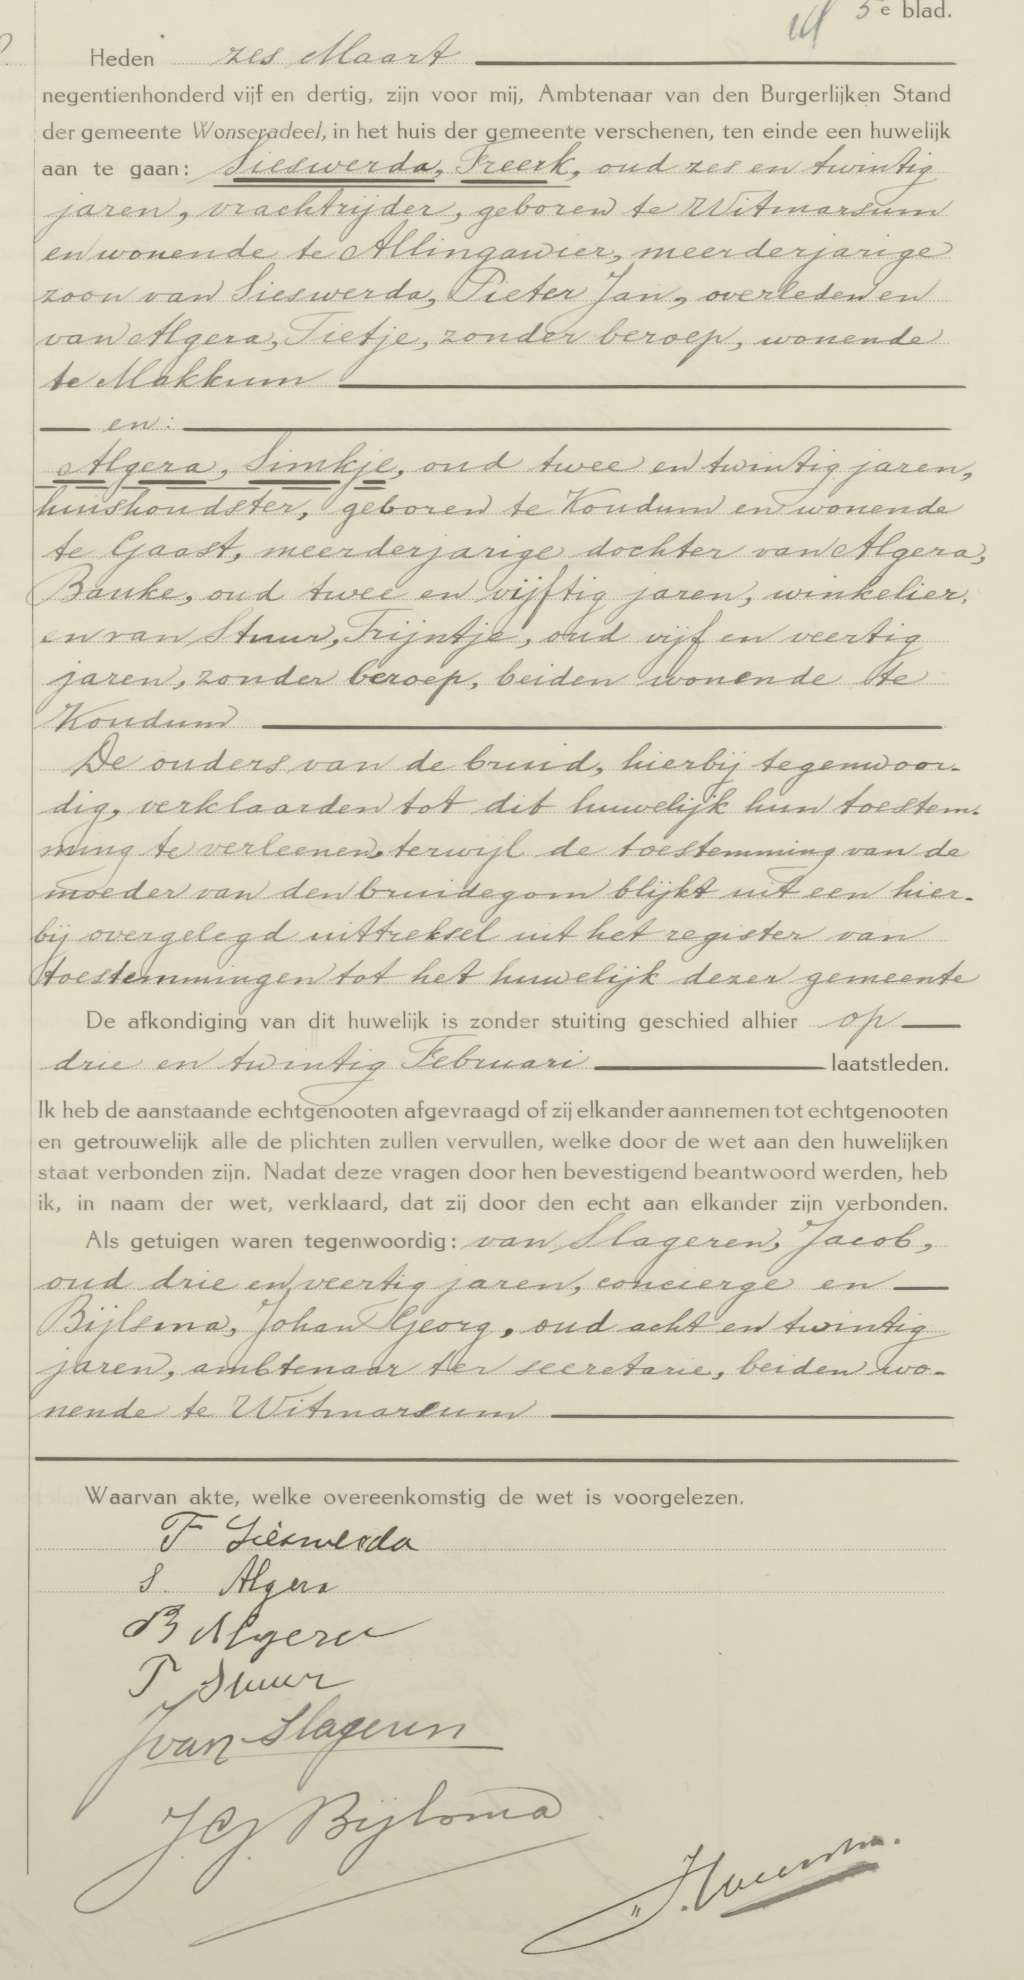 5e blad.
Heden zes Maart
negentienhonderd vijf en dertig, zijn voor mij, Ambtenaar van den Burgerlijken Stand
der gemeente Wonseradeel, in het huis der gemeente verschenen, ten einde een huwelijk
aan te gaan: Sieswerda, Freerk, oud zes en twintig
jaren, vrachtrijder, geboren te Witmarsum
en wonende te Allingawier, meerderjarige
zoon van Sieswerda, Pieter Jan, overleden en
van Algera, Tietje, zonder beroep, wonende
te Makkum
en:
Algera, Simkje, oud twee en twintig jaren,
huishoudster, geboren te Koudum en wonende
te Gaast, meerderjarige dochter van Algera,
Bauke, oud twee en vijftig jaren, winkelier,
en van Stuur, Trijntje, oud vijf en veertig
jaren, zonder beroep, beiden wonende te
Koudum
De ouders van de bruid, hierbij tegenwoor-
dig, verklaarden tot dit huwelijk hun toestem-
ming te verleenen, terwijl de toestemming van de
moeder van den bruidegom blijkt uit een hier-
bij overgelegd uittreksel uit het register van
toestemmingen tot het huwelijk dezer gemeente
De afkondiging van dit huwelijk is zonder stuiting geschied alhier op
drie en twintig Februari laatstleden.
Ik heb de aanstaande echtgenooten afgevraagd of zij elkander aannemen tot echtgenooten
en getrouwelijk alle de plichten zullen vervullen, welke door de wet aan den huwelijken
staat verbonden zijn. Nadat deze vragen door hen bevestigend beantwoord werden, heb
ik, in naam der wet, verklaard, dat zij door den echt aan elkander zijn verbonden.
Als getuigen waren tegenwoordig: van Slageren, Jacob,
oud drie en veertig jaren, concierge en
Bijlsma, Johan Georg, oud acht en twintig
jaren, ambtenaar ter secretarie, beiden wo-
nende te Witmarsum
Waarvan akte, welke overeenkomstig de wet is voorgelezen.
F Sieswerda
S. Algera
B Algera
T Stuur
J van Slageren
J.G. Bijlsma